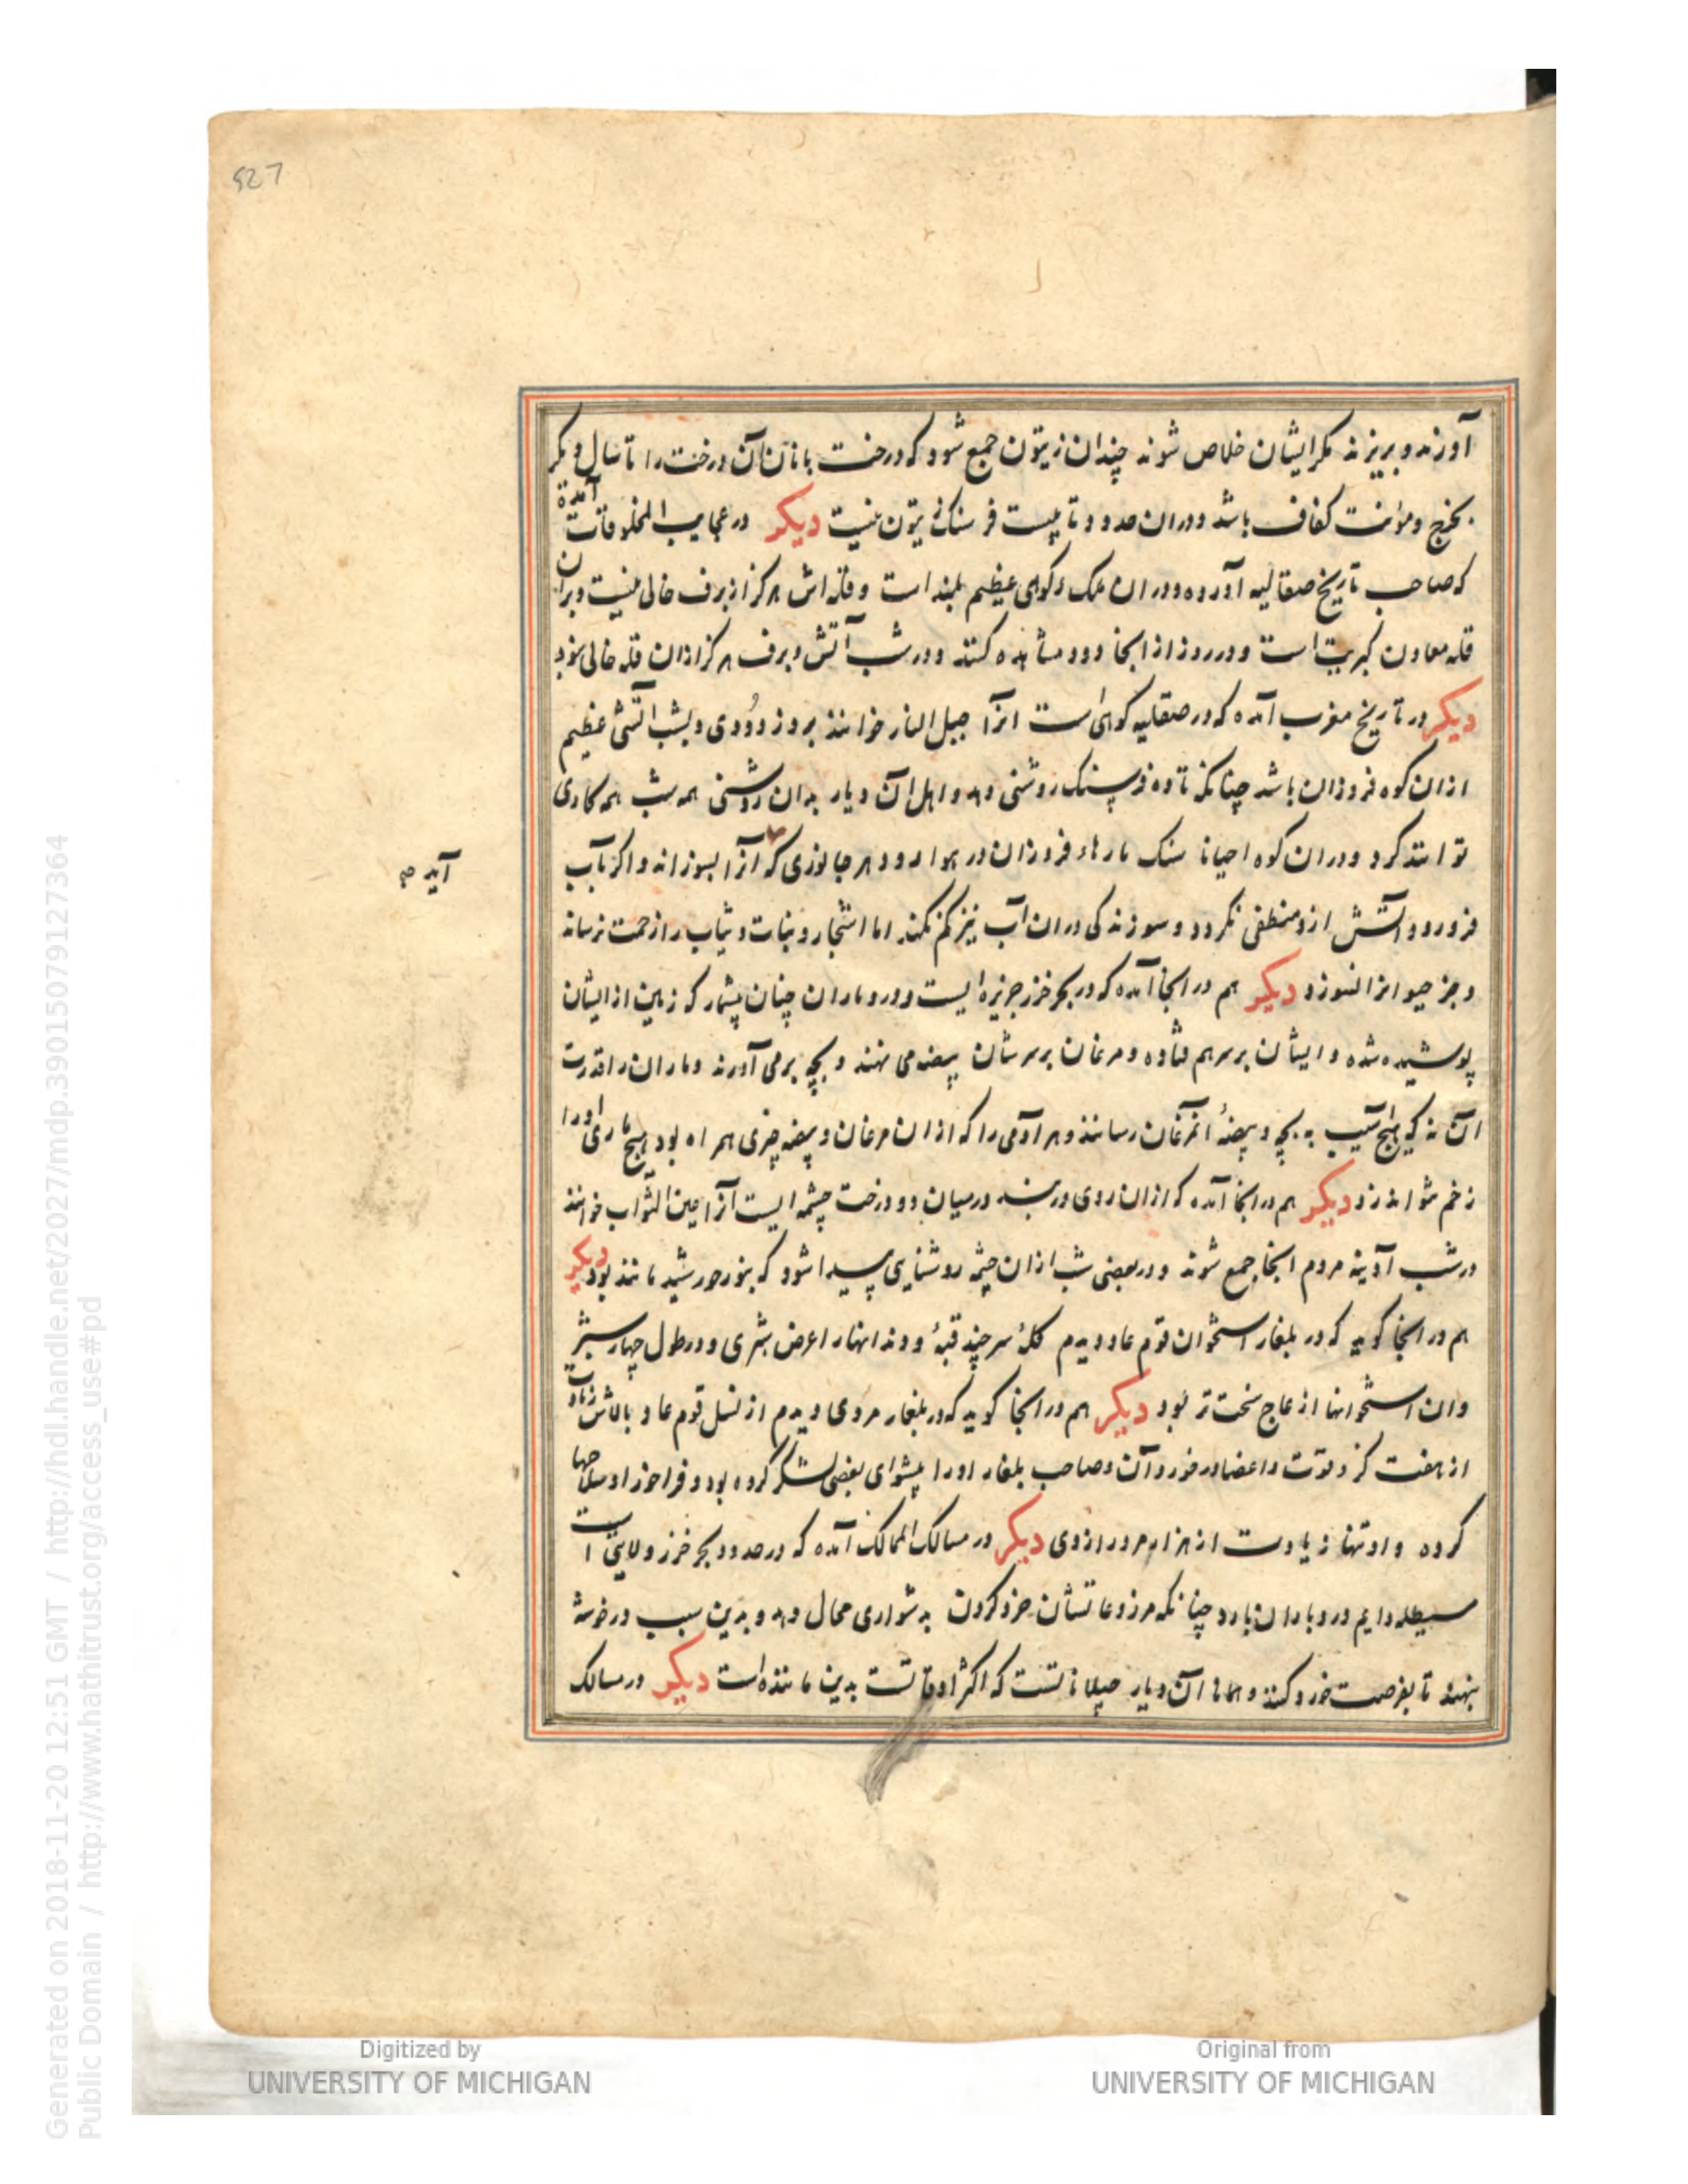 527
آورند و بریزند مکر ایشان خلاص شوند چندان زیتون جمع شود که درخت بانان آن درخت را تا سال دیکر
بخرج و مؤنت کفاف باشد و دران حدود تا بیست فرسنک زیتون نیست دیکر در عجایب المخلوقات آمده
که صاحب تاریخ صقالیه آورده و دران ملک کوهی عظیم بلند است و قله اش هرکز از برف خالی نیست و بران
قله معادن کبریت است و در روز از انجا دود مشاهده کنند و در شب آتش و برف هرکز ازان قله خالی نبود
دیکر در تاریخ مغرب آمده که در صقلیه کوهی است انرا جبل النار خوانند بروز دودی و بشب اتشی عظیم
ازان کوه فروزان باشد چنانکه تا ده فرسنک روشنی دهد و اهل آن دیار بدان روشنی همه شب همه کاری
توانند کرد و دران کوه احیانا سنک پارهاء فروزان در هوا رود و هر جانوری که انرا بسوزاند و اکر بآب
آید صح
فرو رود و آتش ازو منطفی نکردد و سوزندکی دران آب نیز کم نکند اما اشجار و نبات و ثیاب را زحمت نرساند
و جز حیوانرا نسوزد دیکر هم در انجا آمده که در بحر خزر جزیره ایست و درو ماران چنان بیشمار که زمین از ایشان
پوشیده شده و ایشان بر سر هم فتاده و مرغان بر سرشان بیضه می نهند و بچه برمی آورند و ماران را قدرت
آن نه که هیچ آسیب به بچه و بیضهٔ انمرغان رسانند و هر آدمی را که ازان مرغان و بیضه چیزی همراه بود هیچ ماری او را
زخم نتواند زد دیکر هم در انجا آمده که ازان روی دربند در میان دو درخت چشمه ایست آنرا عین الثواب خوانند
در شب آدینه مردم انجا جمع شوند و در بعضی شب ازان چشمه روشنایی پیدا شود که بنور خورشید مانند بود دیکر
هم در انجا کوید که در بلغار استخوان قوم عاد دیدم کلهٔ سر چند قبهٔ و دندانها را عرض شبری و در طول چهار شبر
وان استخوانها از عاج سخت تر بود دیکر هم در انجا کوید که در بلغار مردی دیدم از نسل قوم عاد بالاش زیادت
از هفت کز و قوت و اعضا در خورد آن و صاحب بلغار او را پیشوای بعضی لشکر کرده بود و فراخور او سلاحها
کرده و او تنها زیادت از هزار مرد رازدی دیکر در مسالک الممالک آمده که در حدود بحر خزر ولایتی است
مسیطله دایم درو باران بارد چنانکه مزروعاتشان خرد کردن بدشواری مجال دهد و بدین سبب در خوشه
بنهند تا بفرصت خرد کنند و همانا آن دیار جیلاناتست که اکثر اوقاتست بدین مانند است دیکر در مسالک
Generated on 2018-11-20 12:51 GMT / http://hdl.handle.net/2027/mdp.39015079127364
Public Domain / http://www.hathitrust.org/access_use#pd
Digitized by
UNIVERSITY OF MICHIGAN
Original from
UNIVERSITY OF MICHIGAN